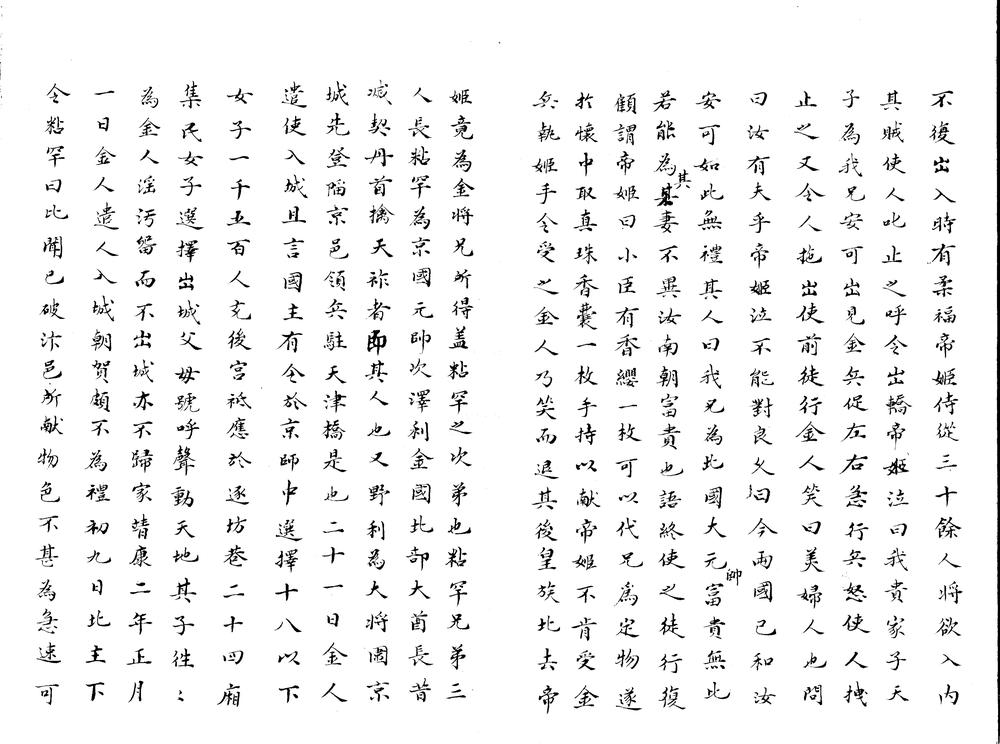 不復出入時有柔福帝姬侍從三十餘人將欲入內
其賊使人叱止之呼令出轎帝姬泣曰我貴家子天
子為我兄安可出見金兵促左右急行兵怒使人拽
止之又令人拖出使前徒行金人笑曰美婦人也問
曰汝有夫乎帝姬泣不能對良久曰今兩國已和汝
安可如此無禮其人曰我兄為北國大元帥富貴無比
若能為其妻不異汝南朝富貴也語終使之徒行復
顧謂帝姬曰小臣有香纓一枚可以代兄為定物遂
於懷中取真珠香囊一枚手持以献帝姬不肯受金
兵執姬手令受之金人乃笑而退其後皇族北去帝
姬竟為金將兄所得盖粘罕之次弟也粘罕兄弟三
人長粘罕為京國元帥次澤利金國北部大酋長昔
滅契丹首擒天祚者即其人也又野利為大將圍京
城先登陷京邑領兵駐天津橋是也二十一日金人
遣使入城且言國主有令於京師中選擇十八以下
女子一千五百人充後宮祗應於逐坊巷二十四廂
集民女子選擇出城父母號呼聲動天地其子徃〻
為金人淫污留而不出城亦不歸家靖康二年正月
一日金人遣人入城朝賀頗不為禮初九日北主下
令粘罕曰比聞已破汴邑所献物色不甚為急速可